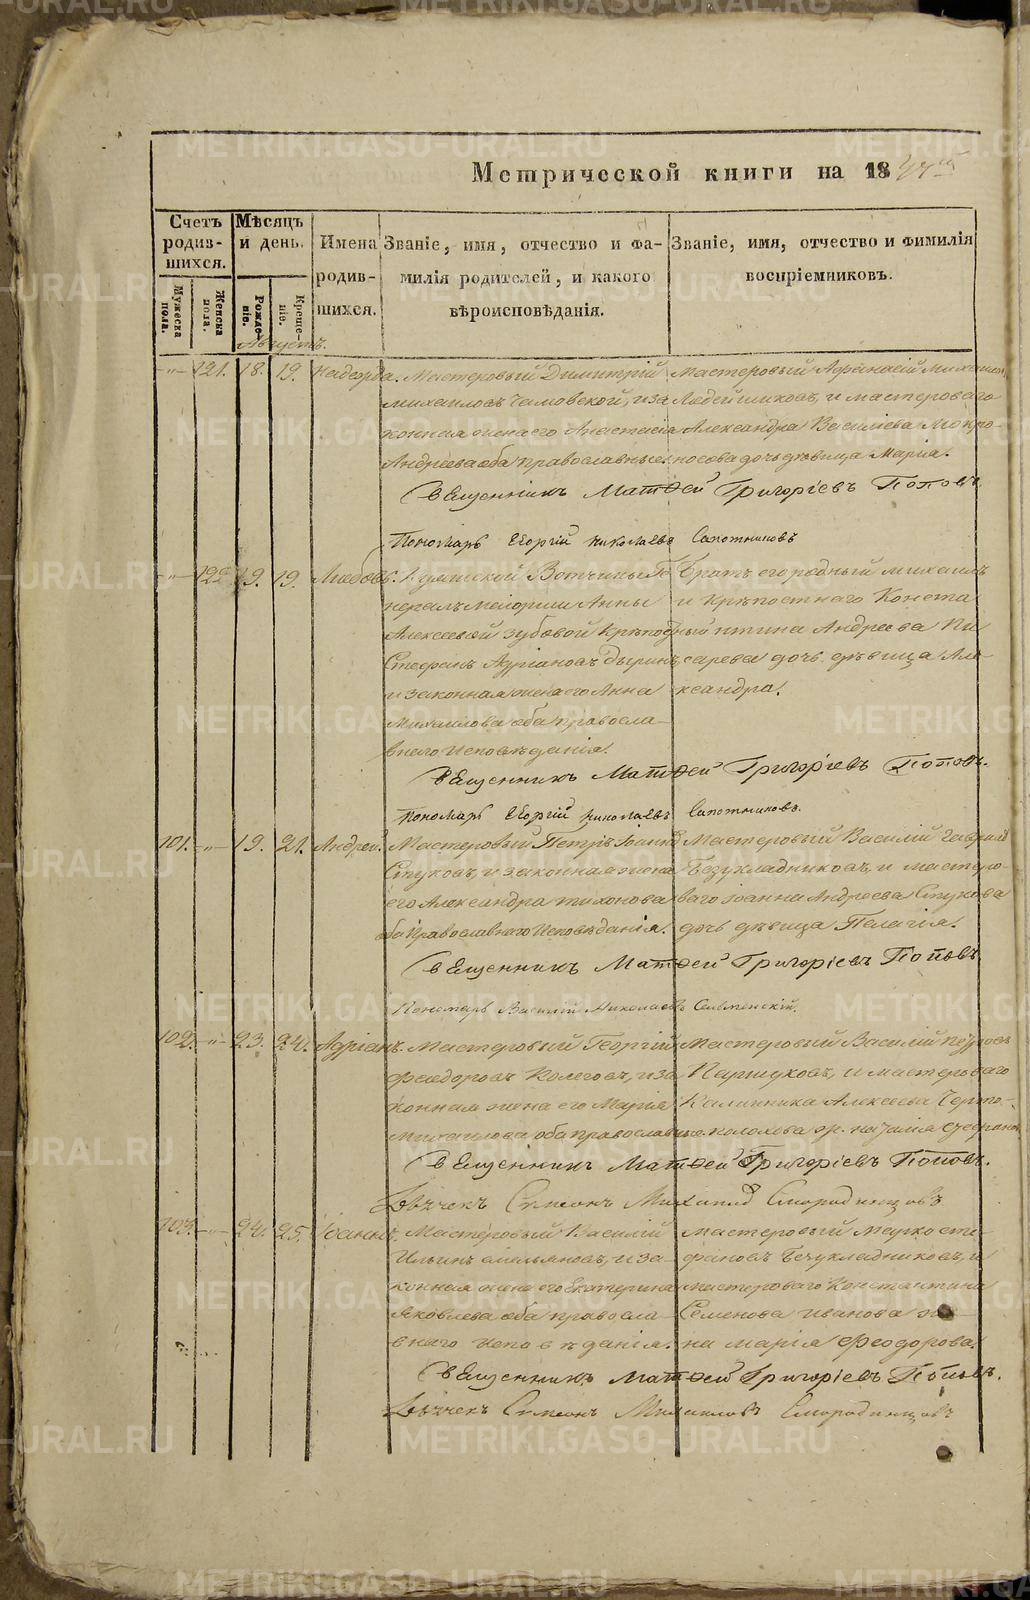 Метрической книги на 18
Счетъ родив-шихся.
Мужеска пола.
Женска пола.
Мѣсяцъ и день.
Рожде-ніе.
Креще-ніе.
Имена родив-шихся.
Званіе, имя, отчество и фа-милія родителей, и какого вѣроисповѣданія.
Званіе, имя, отчество и фимилія воспріемниковъ.
Августъ.
121. 18. 19. Надежда. Мастеровый Димитрій
Михаиловъ Чамовской, и за
конная жена его Анастасія
Андреева оба православные.
Мастеровый Афанасій
и мастероваго
Александра Василіева Мокро-
носова дочь дѣвица Марія.
Священникъ Матѳей Григоріевъ Поповъ
Пономарь Егоргій Николаевъ Сапожниковъ
122. 19. 19. Любовь. Вотчины Ге
нералъ Анны
Алексеевой Зубовой Крѣпостный
Стефанъ Адріановъ
и законная жена его Анна
Михаилова оба правосла-
внаго исповѣданія.
Братъ его родный Михаилъ
и Крѣпостнаго Конста
нтина Андреева Пи
сарева дочь дѣвица Але-
ксандра.
Священникъ Матѳей Григоріевъ Поповъ.
Пономарь Егоргій Николаевъ Сапожниковъ.
101. 19. 21. Андрей. Мастеровый Петръ
Стуковъ, и законная жена
его Александра Тихонова
оба Православнаго Исповѣданія.
Мастеровый Василій Гаврилов
Безукладниковъ, и мастеро-
ваго Іоанна Андреева Стукова
дочь дѣвица Пелагія.
Священникъ Матѳей Григоріевъ Поповъ
Пономарь Василій Николаевъ
102. 23. 24. Адріанъ. Мастеровый Георгій
Феодоровъ Колеговъ, и за
конная жена его Марія
Михаилова оба православные.
Мастеровый Василій
Паршуковъ, и мастероваго
Калинника Алексеева Черно-
Священникъ Матѳей Григоріевъ Поповъ.
Дьячекъ Симеонъ Михаиловъ Смородинцовъ
103. 24. 25. Іоаннъ. Мастеровый Василій
Ильинъ Емельяновъ, и за-
конная жена его Екатерина
Яковлева оба правосла-
внаго исповѣданія.
Мастеровый Марко Сте-
фановъ Безукладниковъ, и
мастероваго Константина
Семенова Иванова же-
на Марія Феодорова.
Священникъ Матѳей Григоріевъ Поповъ.
Дьячекъ Симеонъ Михаиловъ Смородинцовъ
METRIKI.GASO-URAL.RU